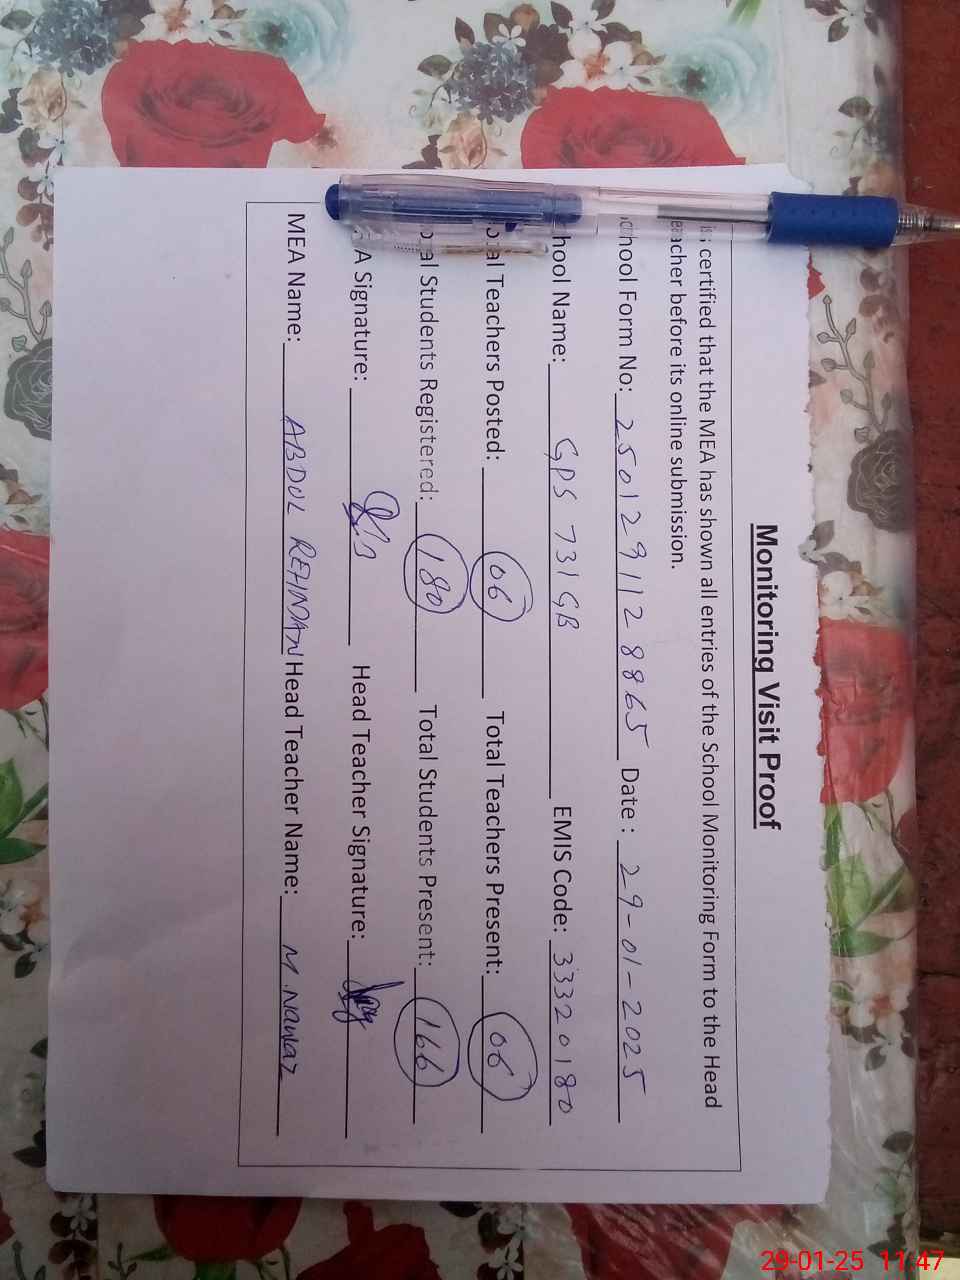 Monitoring Visit Proof
is certified that the MEA has shown all entries of the School Monitoring Form to the Head
eacher before its online submission.
chool Form No: 2501291128865 Date : 29-01-2025
hool Name: GPS 731 GB EMIS Code: 33320180
al Teachers Posted: 06 Total Teachers Present: 06
al Students Registered: 180 Total Students Present: 166
A Signature: Head Teacher Signature:
MEA Name: ABDUL REHMAN Head Teacher Name: M. Nawaz
29-01-25 11:47